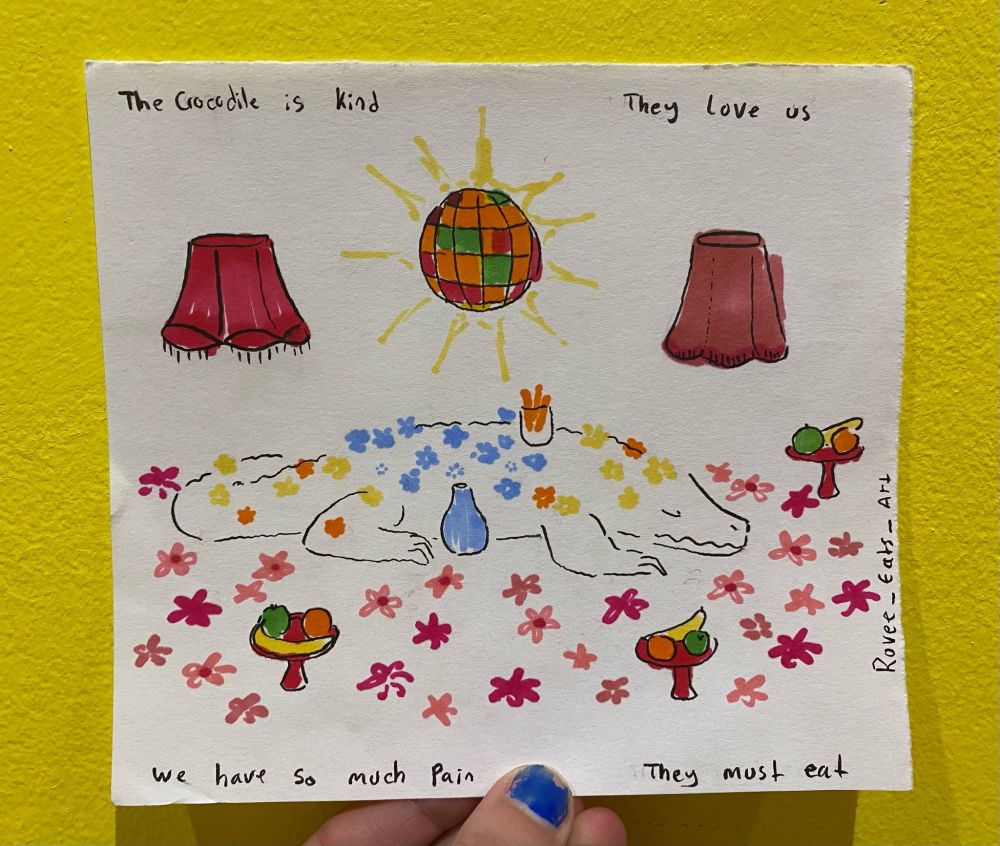 The Crocodile is Kind
They love us
we have so much Pain
They must eat
Rovee_Eats_Art